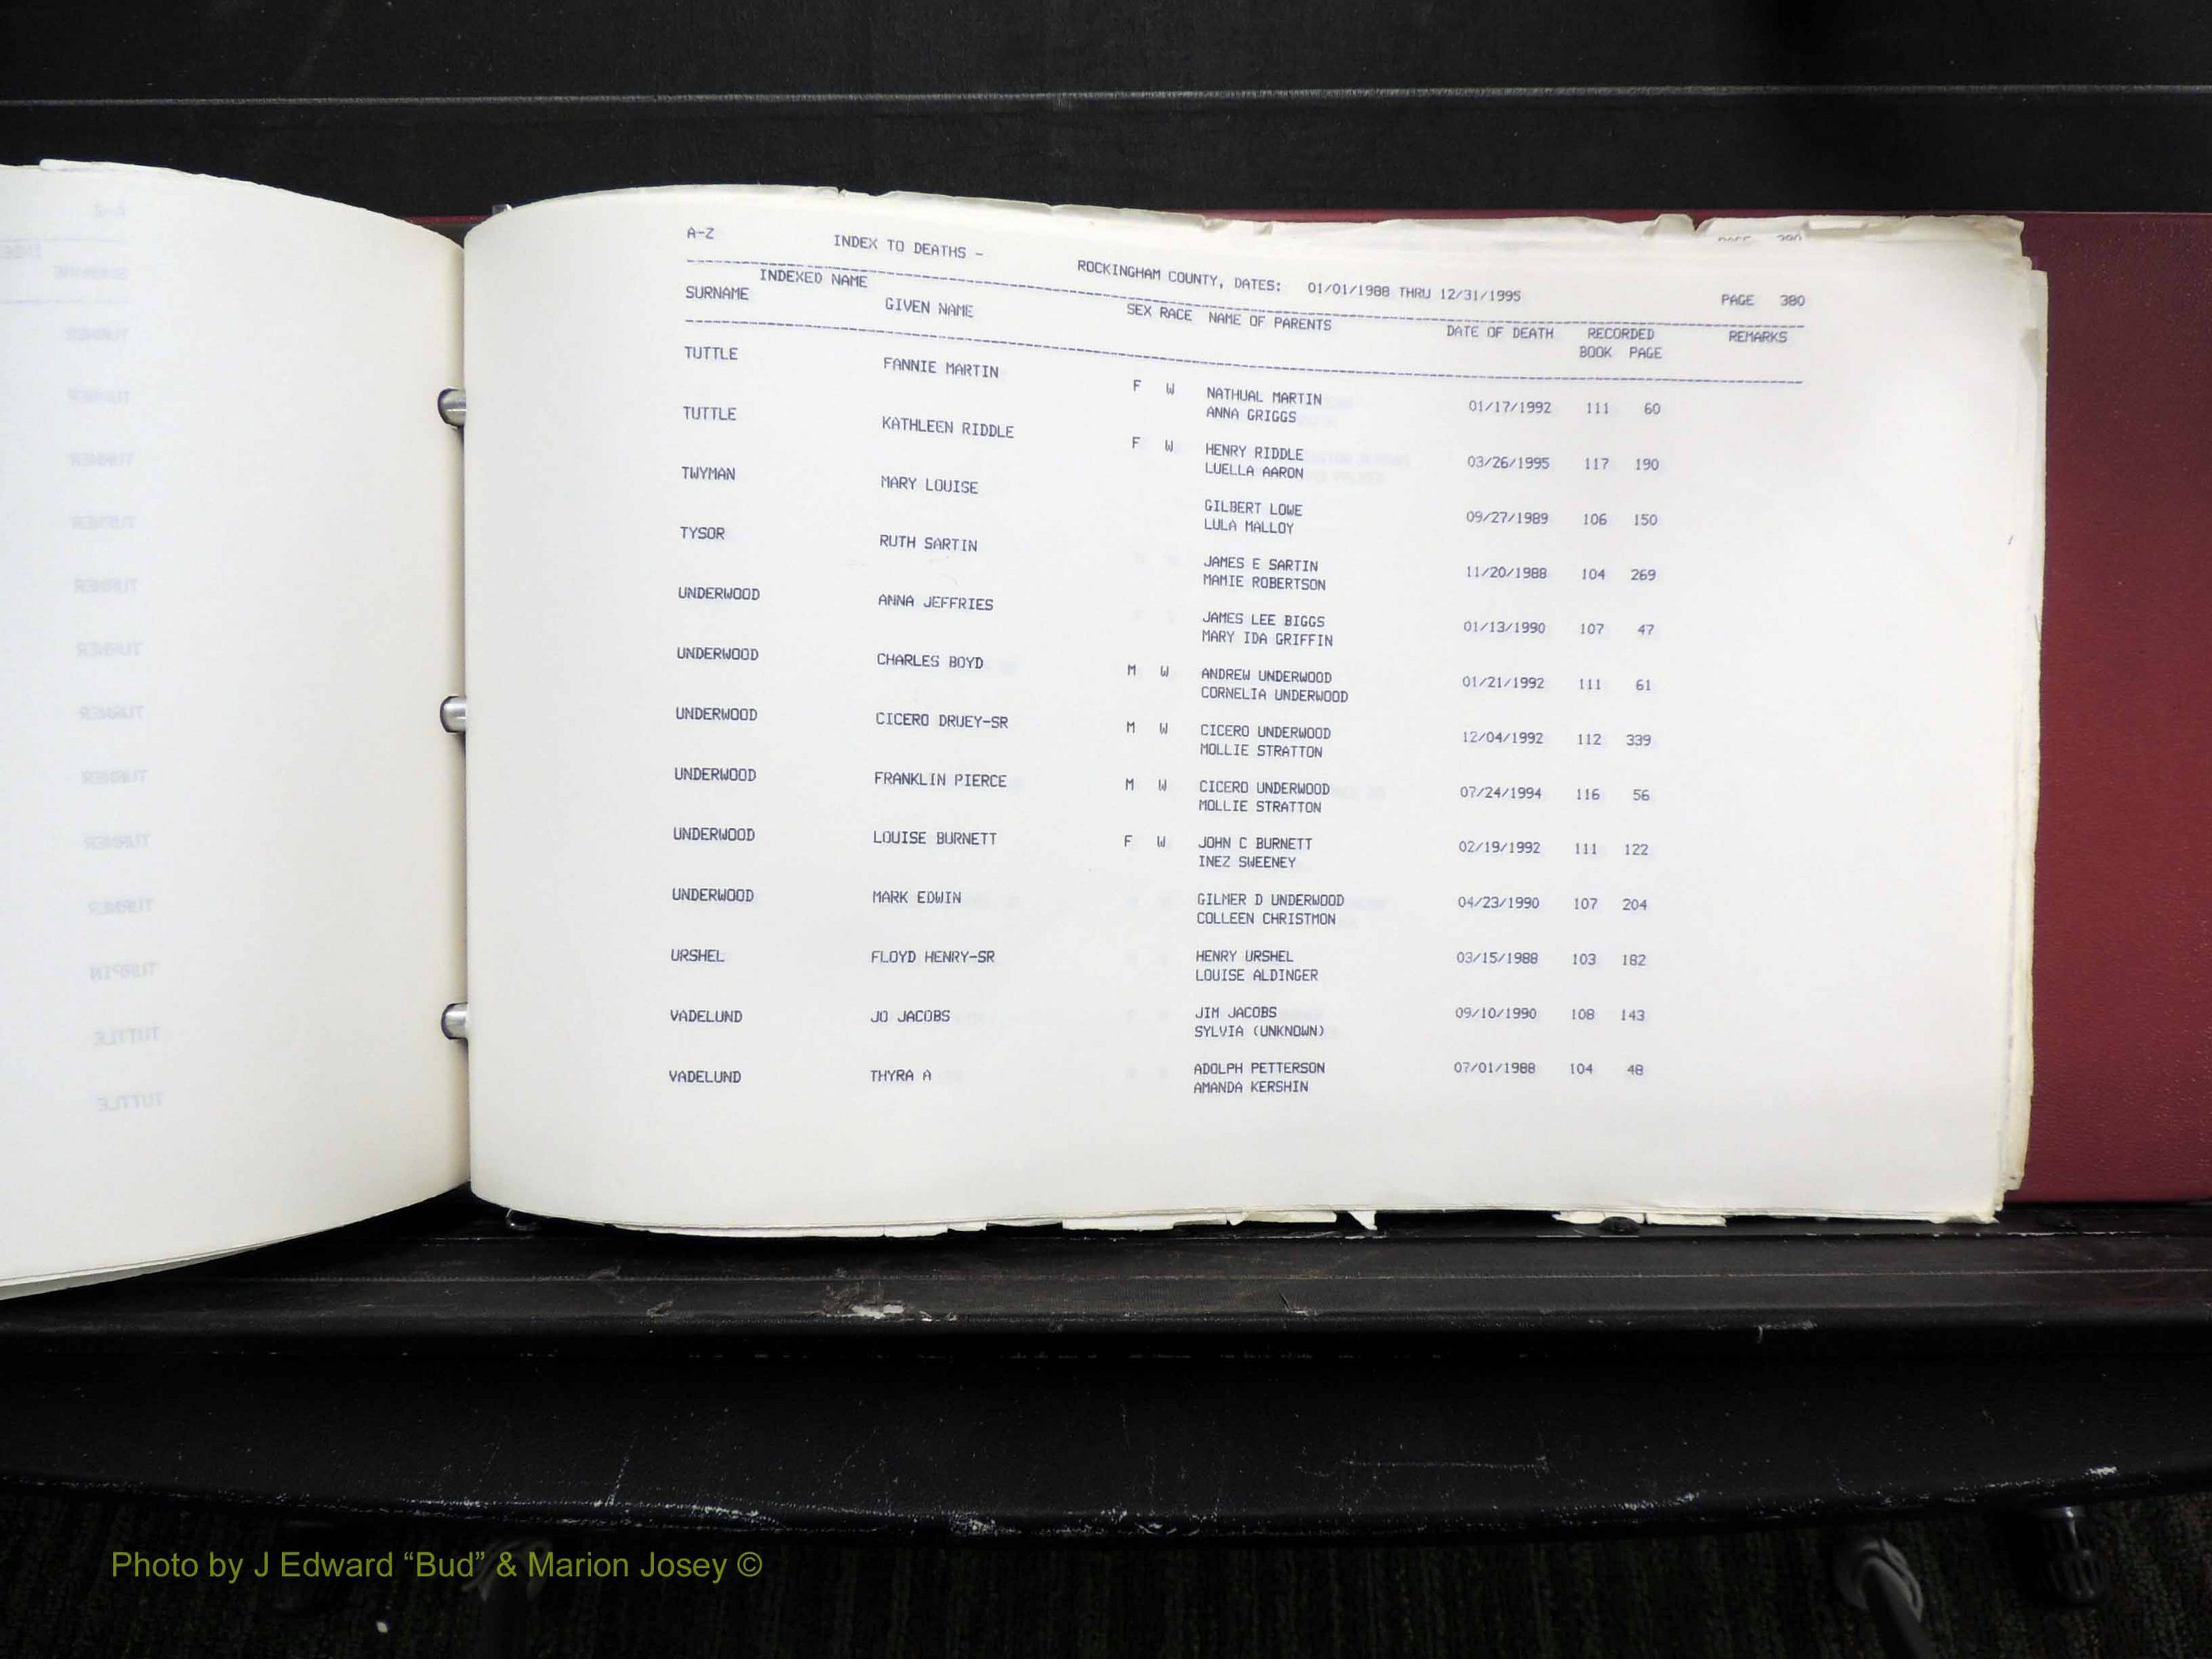 A-Z INDEX TO DEATHS - ROCKINGHAM COUNTY, DATES: 01/01/1988 THRU 12/31/1995 PAGE 380
INDEXED NAME
SURNAME GIVEN NAME SEX RACE NAME OF PARENTS DATE OF DEATH RECORDED REMARKS
BOOK PAGE
TUTTLE FANNIE MARTIN F W NATHUAL MARTIN 01/17/1992 111 60
ANNA GRIGGS
TUTTLE KATHLEEN RIDDLE F W HENRY RIDDLE 03/26/1995 117 190
LUELLA AARON
TWYMAN MARY LOUISE GILBERT LOWE 09/27/1989 106 150
LULA MALLOY
TYSOR RUTH SARTIN JAMES E SARTIN 11/20/1988 104 269
MAMIE ROBERTSON
UNDERWOOD ANNA JEFFRIES JAMES LEE BIGGS 01/13/1990 107 47
MARY IDA GRIFFIN
UNDERWOOD CHARLES BOYD M W ANDREW UNDERWOOD 01/21/1992 111 61
CORNELIA UNDERWOOD
UNDERWOOD CICERO DRUEY-SR M W CICERO UNDERWOOD 12/04/1992 112 339
MOLLIE STRATTON
UNDERWOOD FRANKLIN PIERCE M W CICERO UNDERWOOD 07/24/1994 116 56
MOLLIE STRATTON
UNDERWOOD LOUISE BURNETT F W JOHN C BURNETT 02/19/1992 111 122
INEZ SWEENEY
UNDERWOOD MARK EDWIN GILMER D UNDERWOOD 04/23/1990 107 204
COLLEEN CHRISTMON
URSHEL FLOYD HENRY-SR HENRY URSHEL 03/15/1988 103 182
LOUISE ALDINGER
VADELUND JO JACOBS JIM JACOBS 09/10/1990 108 143
SYLVIA (UNKNOWN)
VADELUND THYRA A ADOLPH PETTERSON 07/01/1988 104 48
AMANDA KERSHIN
Photo by J Edward “Bud” & Marion Josey ©